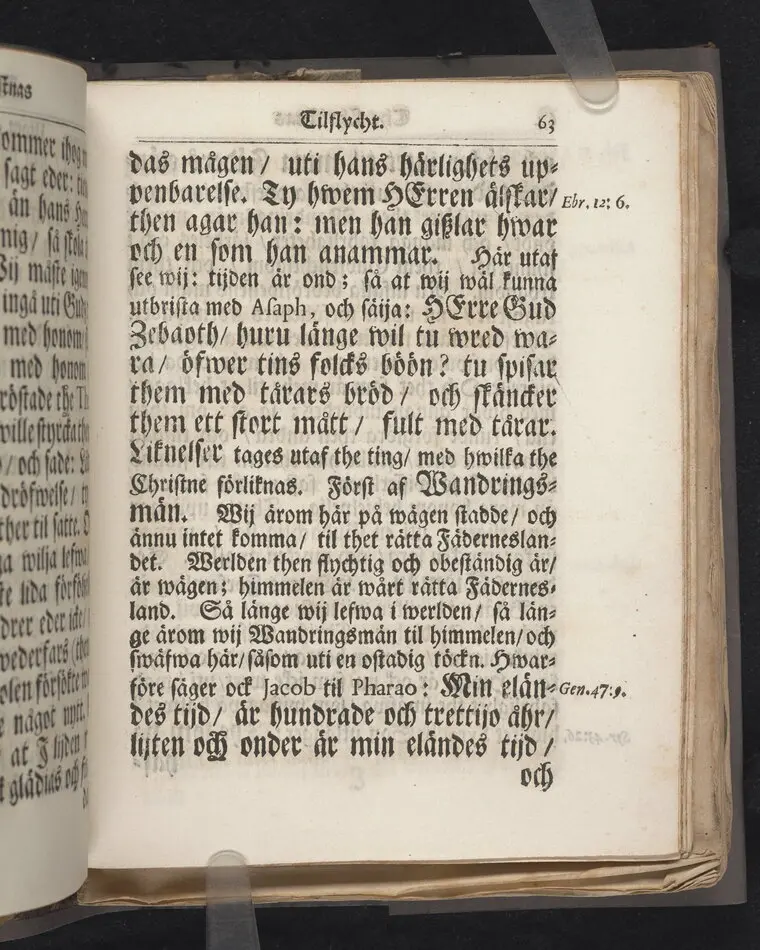 Tilflycht. 63
das mågen / uti hans härlighets up⸗
penbarelse. Ty hwem HErren älskar/ Ebr. 12: 6.
then agar han: men han gißlar hwar
och en som han anammar. Här utaf
see wij: tijden är ond; så at wij wäl kunna
utbrista med Asaph, och säija: HErre Gud
Zebaoth/ huru länge wil tu wred wa⸗
ra/ öfwer tins folcks böön? tu spisar
them med tårars bröd / och skäncker
them ett stort mått / fult med tårar.
Liknelser tages utaf the ting/ med hwilka the
Christne förliknas. Först af Wandrings⸗
män. Wij ärom här på wägen stadde/ och
ännu intet komma/ til thet rätta Fädernes­lan⸗
det. Werlden then flychtig och obeständig är/
är wägen; himmelen är wårt rätta Fädernes⸗
land. Så länge wij lefwa i werlden/ så län⸗
ge ärom wij Wandringsmän til himmelen/ och
swäfwa här/ såsom uti en ostadig töckn. Hwar⸗
före säger ock Jacob til Pharao: Min elän⸗ Gen. 47: 9.
des tijd/ är hundrade och trettijo åhr/
lijten och onder är min eländes tijd /
och
ommer ihog
sagt eder:
än hans
mig/ så
Wij måste
ingå uti
med honom
med honom
the
/ och sade:
dröfwelse/
ther til satte.
wilja
lida
eder
något nytt.
at J